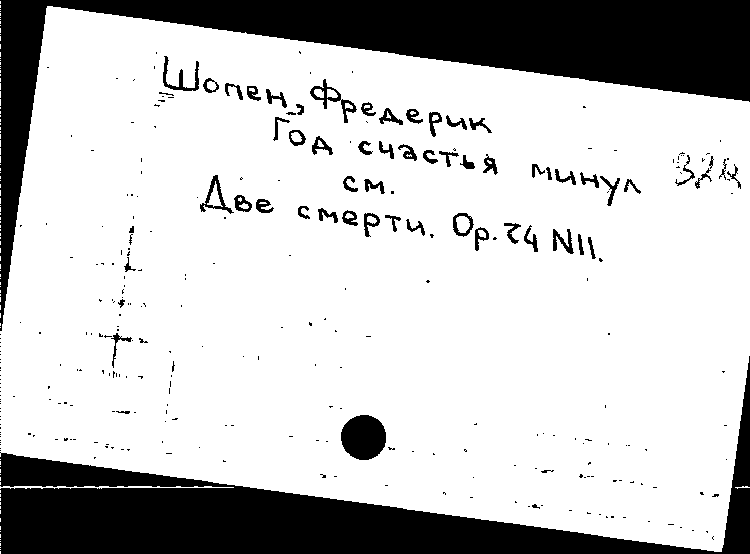 Шопен, Фредерик
Год счастья минул
см.
Две смерти. Op. 74 N11.